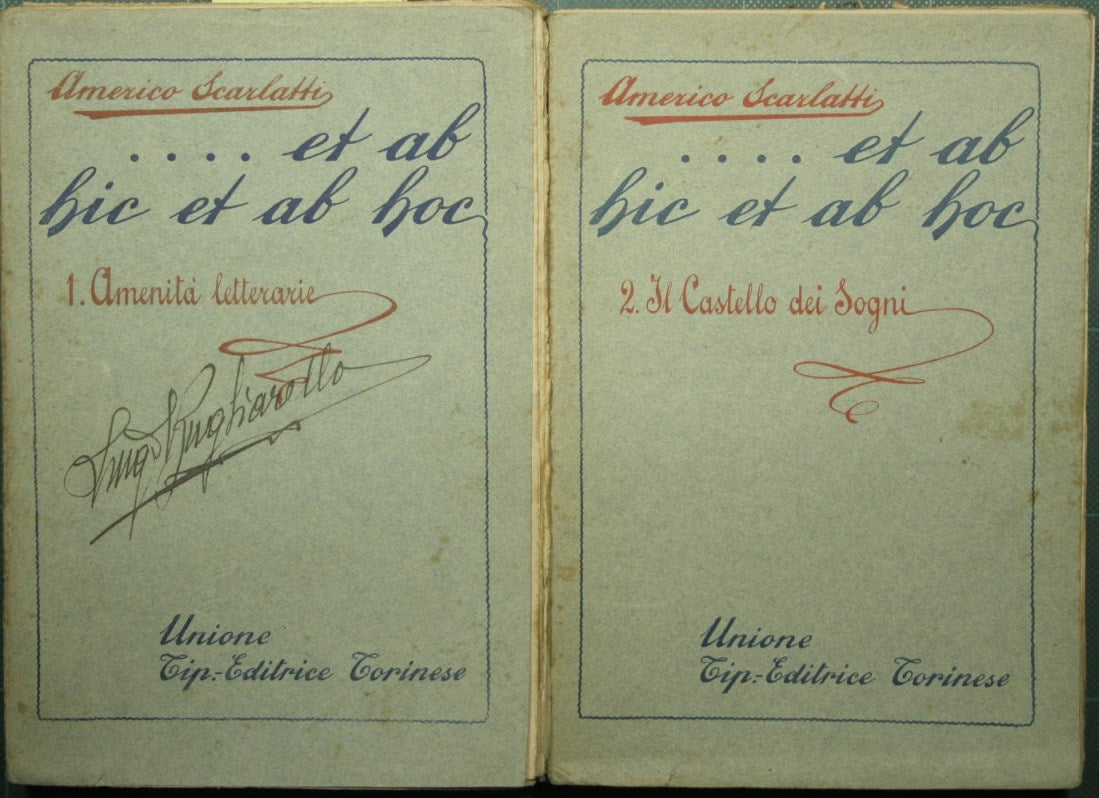 Americo Scarlatti
.... et ab
hic et ab hoc
1. Amenità letterarie
Unione
Tip.-Editrice Torinese
Americo Scarlatti
.... et ab
hic et ab hoc
2. Il Castello dei Sogni
Unione
Tip.-Editrice Torinese